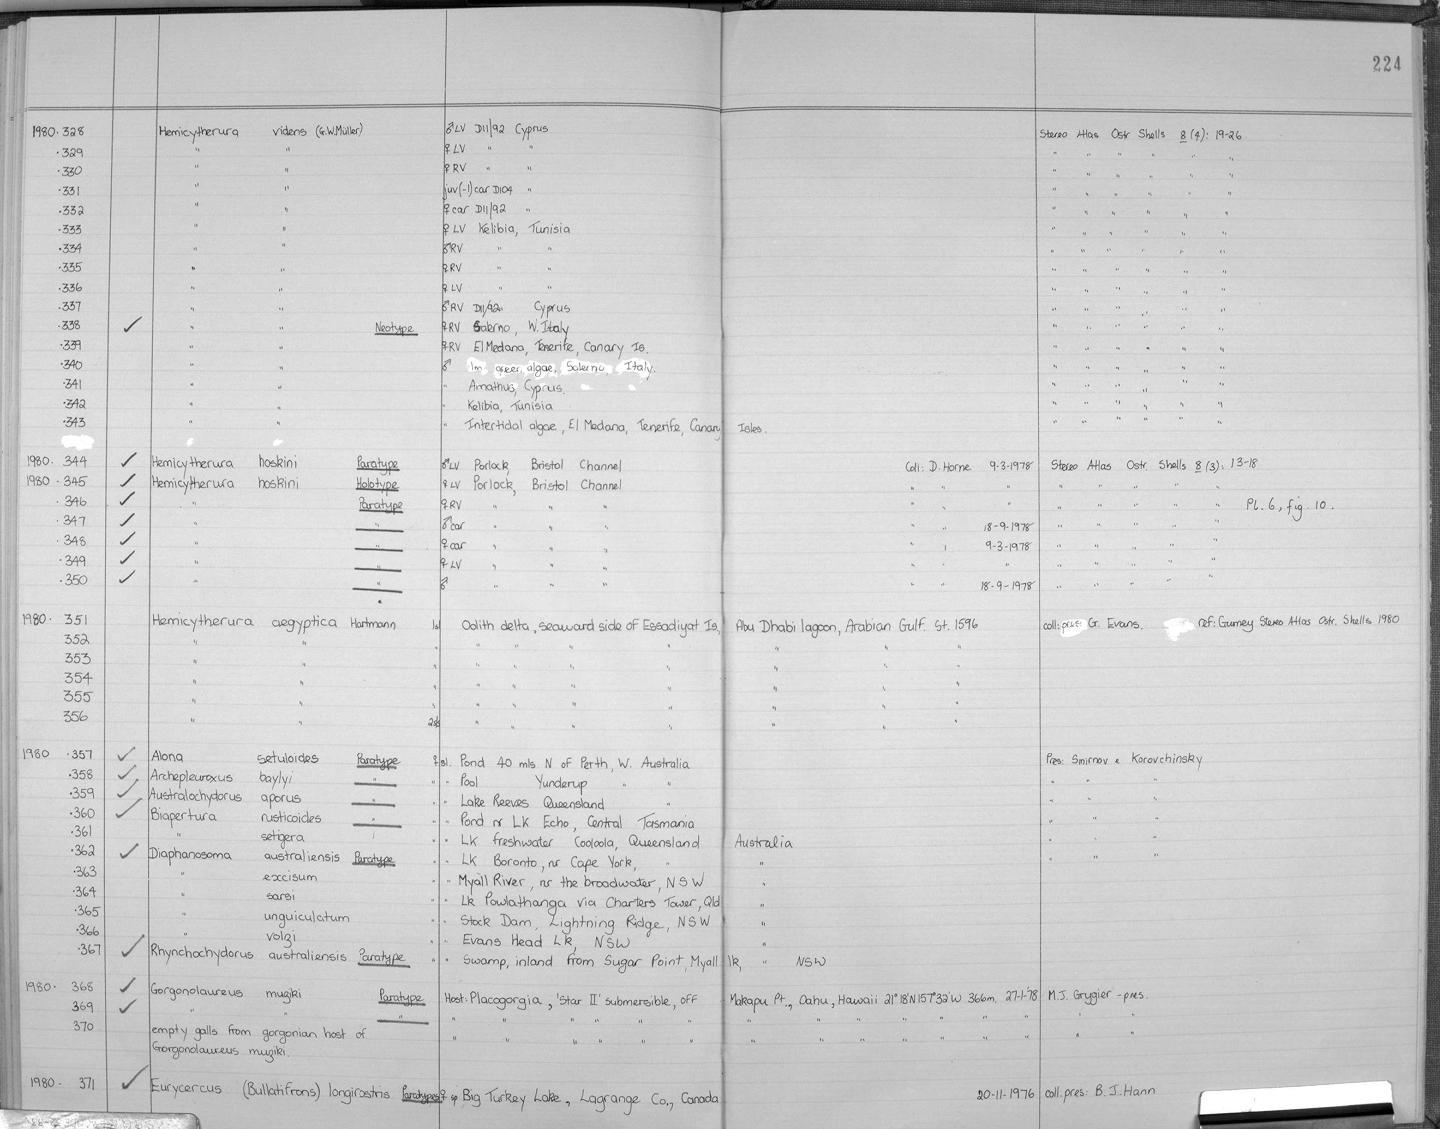 224
1980.328 Hemicytherura videns (G.W.Müller) ♂ LV D11/92 Cyprus Stereo Atlas Ostr Shells 8 (4): 19-26
.329 " " ♀ LV " " " " " " " "
.330 " " ♀ RV " " " " " " " "
.331 " " juv(-1) car D104 " " " " " " "
.332 " " ♀ car D11/92 " " " " " " "
.333 " " ♀ LV Kelibia, Tunisia " " " " " "
.334 " " ♂ RV " " " " " " " "
.335 " " ♀ RV " " " " " " " "
.336 " " ♀ LV " " " " " " " "
.337 " " ♂ RV D11/92 Cyprus " " " " " "
.338 ✓ " " Neotype ♀ RV Salerno, W. Italy " " " " " "
.339 " " ♀ RV El Medana, Tenerife, Canary Is. " " " " " "
.340 " " ♂ algae, Salerno, Italy. " " " " " "
.341 " " " Amathus, Cyprus. " " " " " "
.342 " " " Kelibia, Tunisia " " " " " "
.343 " " " Intertidal algae, El Medana, Tenerife, Canary Isles. " " " " " "
1980. 344 ✓ Hemicytherura hoskini Paratype ♂ LV Porlock, Bristol Channel Coll: D. Horne 9-3-1978 Stereo Atlas Ostr. Shells 8 (3): 13-18
1980. 345 ✓ Hemicytherura hoskini Holotype ♀ LV Porlock, Bristol Channel " " " " " " " " "
.346 ✓ " Paratype ♀ RV " " " " " " " " " " " Pl. 6, fig. 10.
.347 ✓ " " ♂ car " " " 18-9-1978 " " " " "
.348 ✓ " " ♀ car " " " " " 9-3-1978 " " " " "
.349 ✓ " " ♀ LV " " " " " " "
.350 ✓ " " ♂ " " " " " 18-9-1978 " " " " "
1980. 351 Hemicytherura aegyptica Hartmann 1sl Oolith delta, seaward side of Essadiyat Is, Abu Dhabi lagoon, Arabian Gulf. St. 1596 coll: pres: G. Evans. ref: Gurney Stereo Atlas Ostr. Shells 1980
352 " " " " " " " " " "
353 " " " " " " " " " "
354 " " " " " " " " " "
355 " " " " " " " " " "
356 " " " " " " " " "
1980 .357 ✓ Alona setuloides Paratype ♀ sl. Pond 40 mls N of Perth, W. Australia Pres: Smirnov & Korovchinsky
.358 ✓ Archepleuroxus baylyi " " " Pool Yunderup " " " " "
.359 ✓ Australochydorus aporus " " " Lake Reeves Queensland " " " "
.360 ✓ Biapertura rusticoides " " " Pond nr Lk Echo, Central Tasmania " " "
.361 " setigera " " " Lk freshwater Cooloola, Queensland Australia " " "
.362 ✓ Diaphanosoma australiensis Paratype " " Lk Boronto, nr Cape York, " " " " "
.363 " excisum " " Myall River, nr the broadwater, NSW "
.364 " sarsi " " Lk Powlathanga via Charters Tower, Qld "
.365 " unguiculatum " " Stock Dam, Lightning Ridge, NSW "
.366 " volzi " " Evans Head Lk, NSW "
.367 ✓ Rhynchochydorus australiensis Paratype " " Swamp, inland from Sugar Point, Myall lk, " NSW
1980. 368 ✓ Gorgonolaureus muziki Paratype Host: Placogorgia, 'Star II' submersible, off Makapu Pt., Oahu, Hawaii 21°18'N 157°32'W 366m. 27-1-'78 M.J. Grygier - pres.
369 ✓ " " " " " " " " " " " " " " " "
370 empty galls from gorgonian host of " " " " " " " " " " " " "
Gorgonolaureus muziki.
1980. 371 ✓ Eurycercus (Bullatifrons) longirostris Paratypes ♀ sp Big Turkey Lake, Lagrange Co., Canada 20-11-1976 coll. pres: B.J. Hann